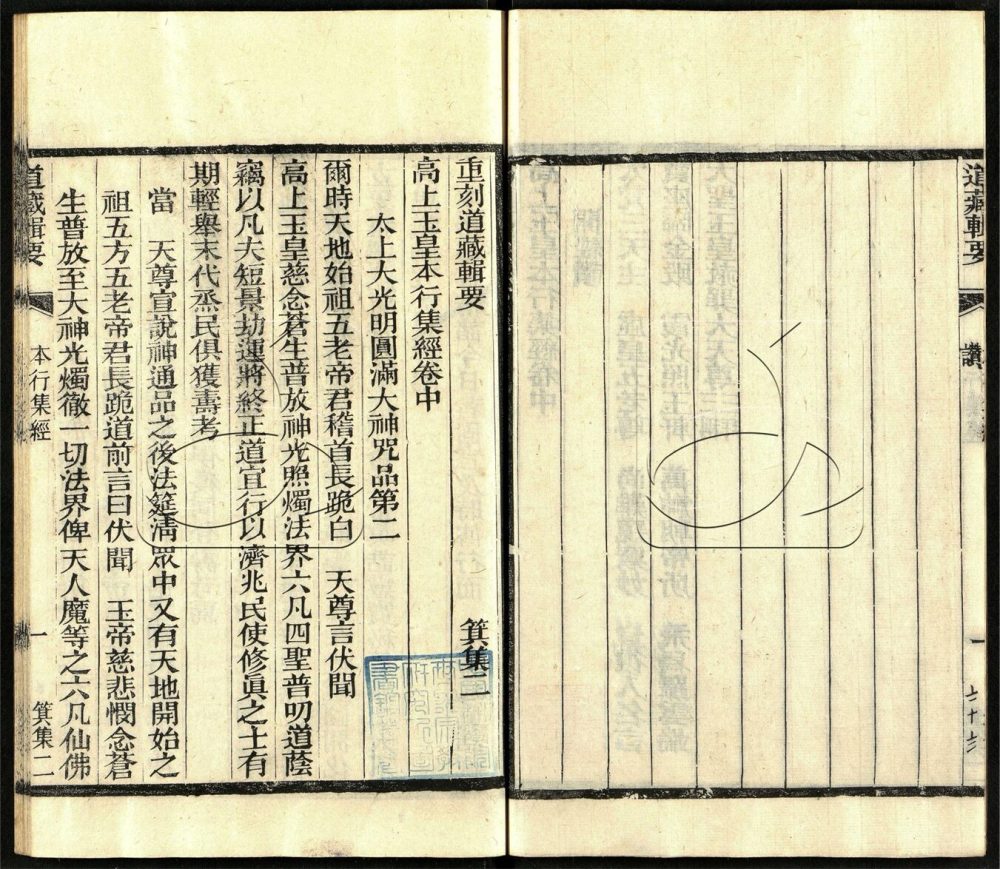 道藏輯要
讚
一
重刻道藏輯要
箕集二
高上玉皇本行集經卷中
太上大光明圓滿大神咒品第二
爾時天地始祖五老帝君稽首長跪白 天尊言伏聞
高上玉皇慈念蒼生普放神光照燭法界六凡四聖普叨道蔭
竊以凡夫短景劫運將終正道宜行以濟兆民使修眞之士有
期輕舉末代烝民俱獲壽考
當 天尊宣說神通品之後法筵淸眾中又有天地開始之
祖五方五老帝君長跪道前言曰伏聞 玉帝慈悲憫念蒼
生普放至大神光燭徹一切法界俾天人魔等之六凡仙佛
道藏輯要
本行集經
一
箕集二